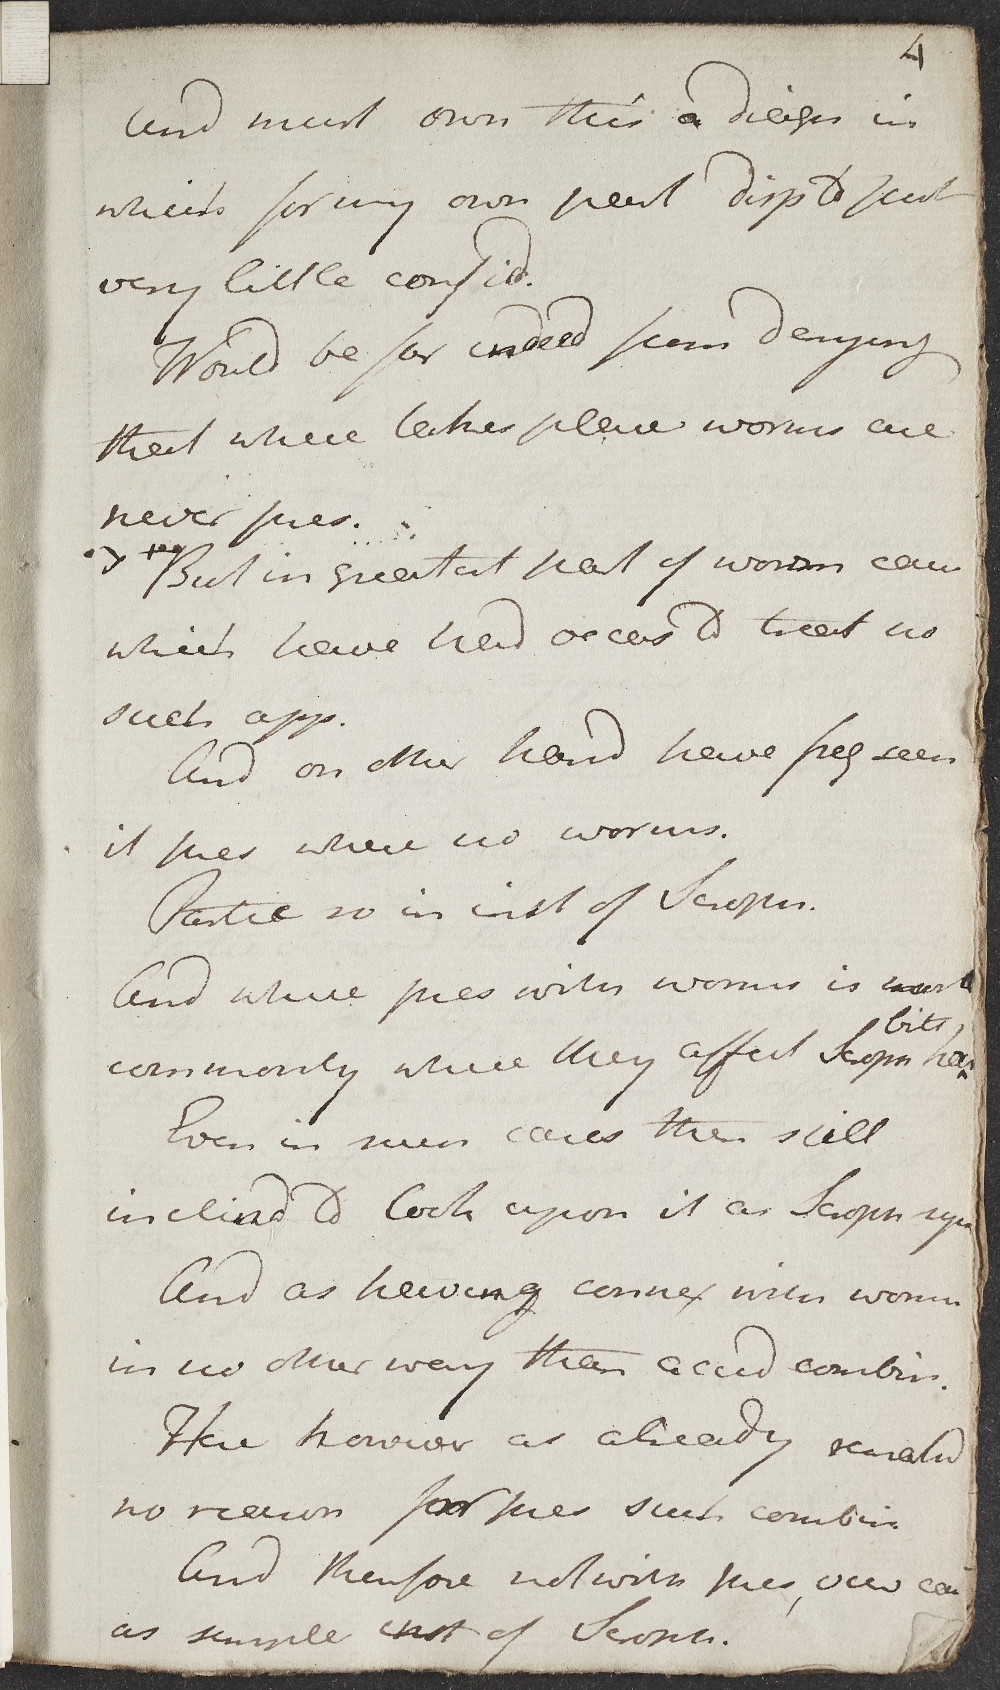 4
And must own this a diagn in
which for my own part disp to put
very little confid.
Would be far indeed from denying
that where takes place worms are
never pres.
But in greatest part of worm cases
which have had occas to treat no
such app.
And on other hand have freq seen
it pres where no worms.
Partic so in inst of Scroph.
And where pres with worms is most
bits,
commonly where they affect Scroph ha
Even in such cases then still
inclind to look upon it as Scroph sym
And as having connex with worm
in no other way than accid combin.
Here however as already remarkd
no reason for pres such combin.
And therefore notwith pres, view case
as simple inst of Scroph.